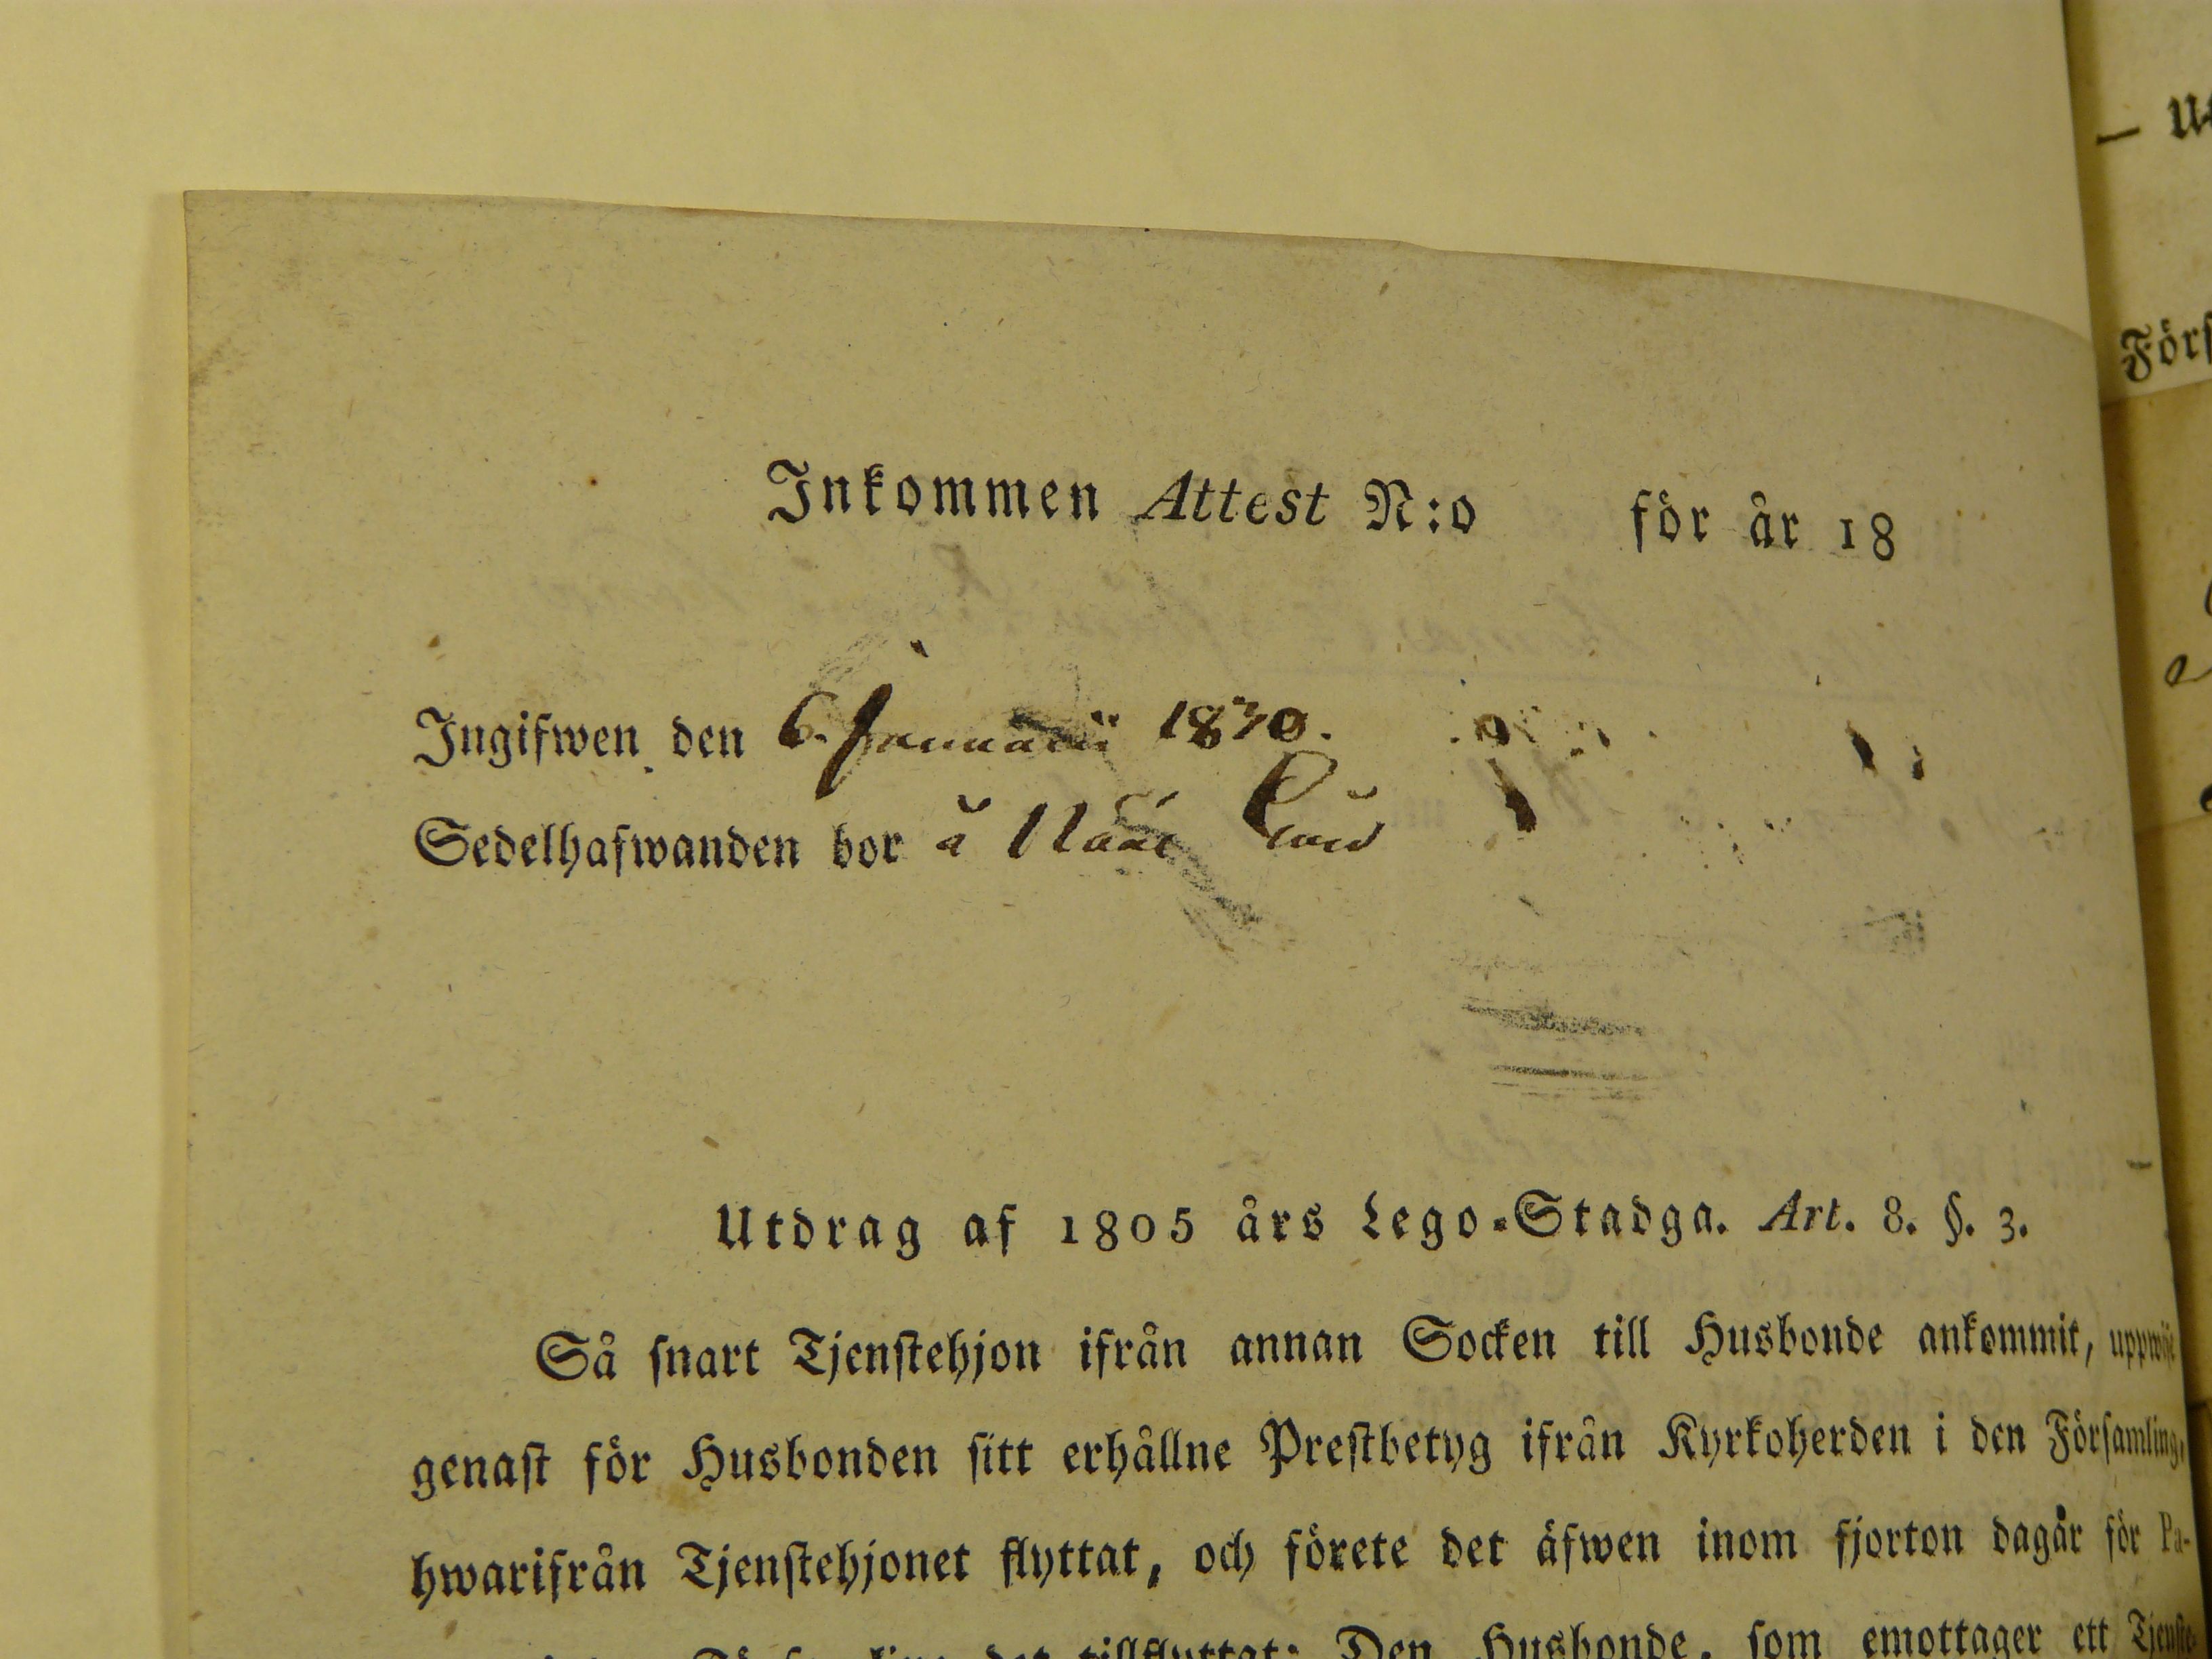 Inkommen Attest N:o för år 18
Ingifwen den 6. Januarii 1830.
Sedelhafwanden bor å
Utdrag af 1805 års Lego-Stadga. Art. 8. §. 3.
Så snart Tjenstehjon ifrån annan Socken till Husbonde ankommit,
genast för Husbonden sitt erhållne Prestbetyg ifrån Kyrkoherden i den Församling,
hwarifrån Tjenstehjonet flyttat, och förete det äfwen inom fjorton dagar för Pa-
det tillflyttat: Den Husbonde, som emottager ett Tjenste-